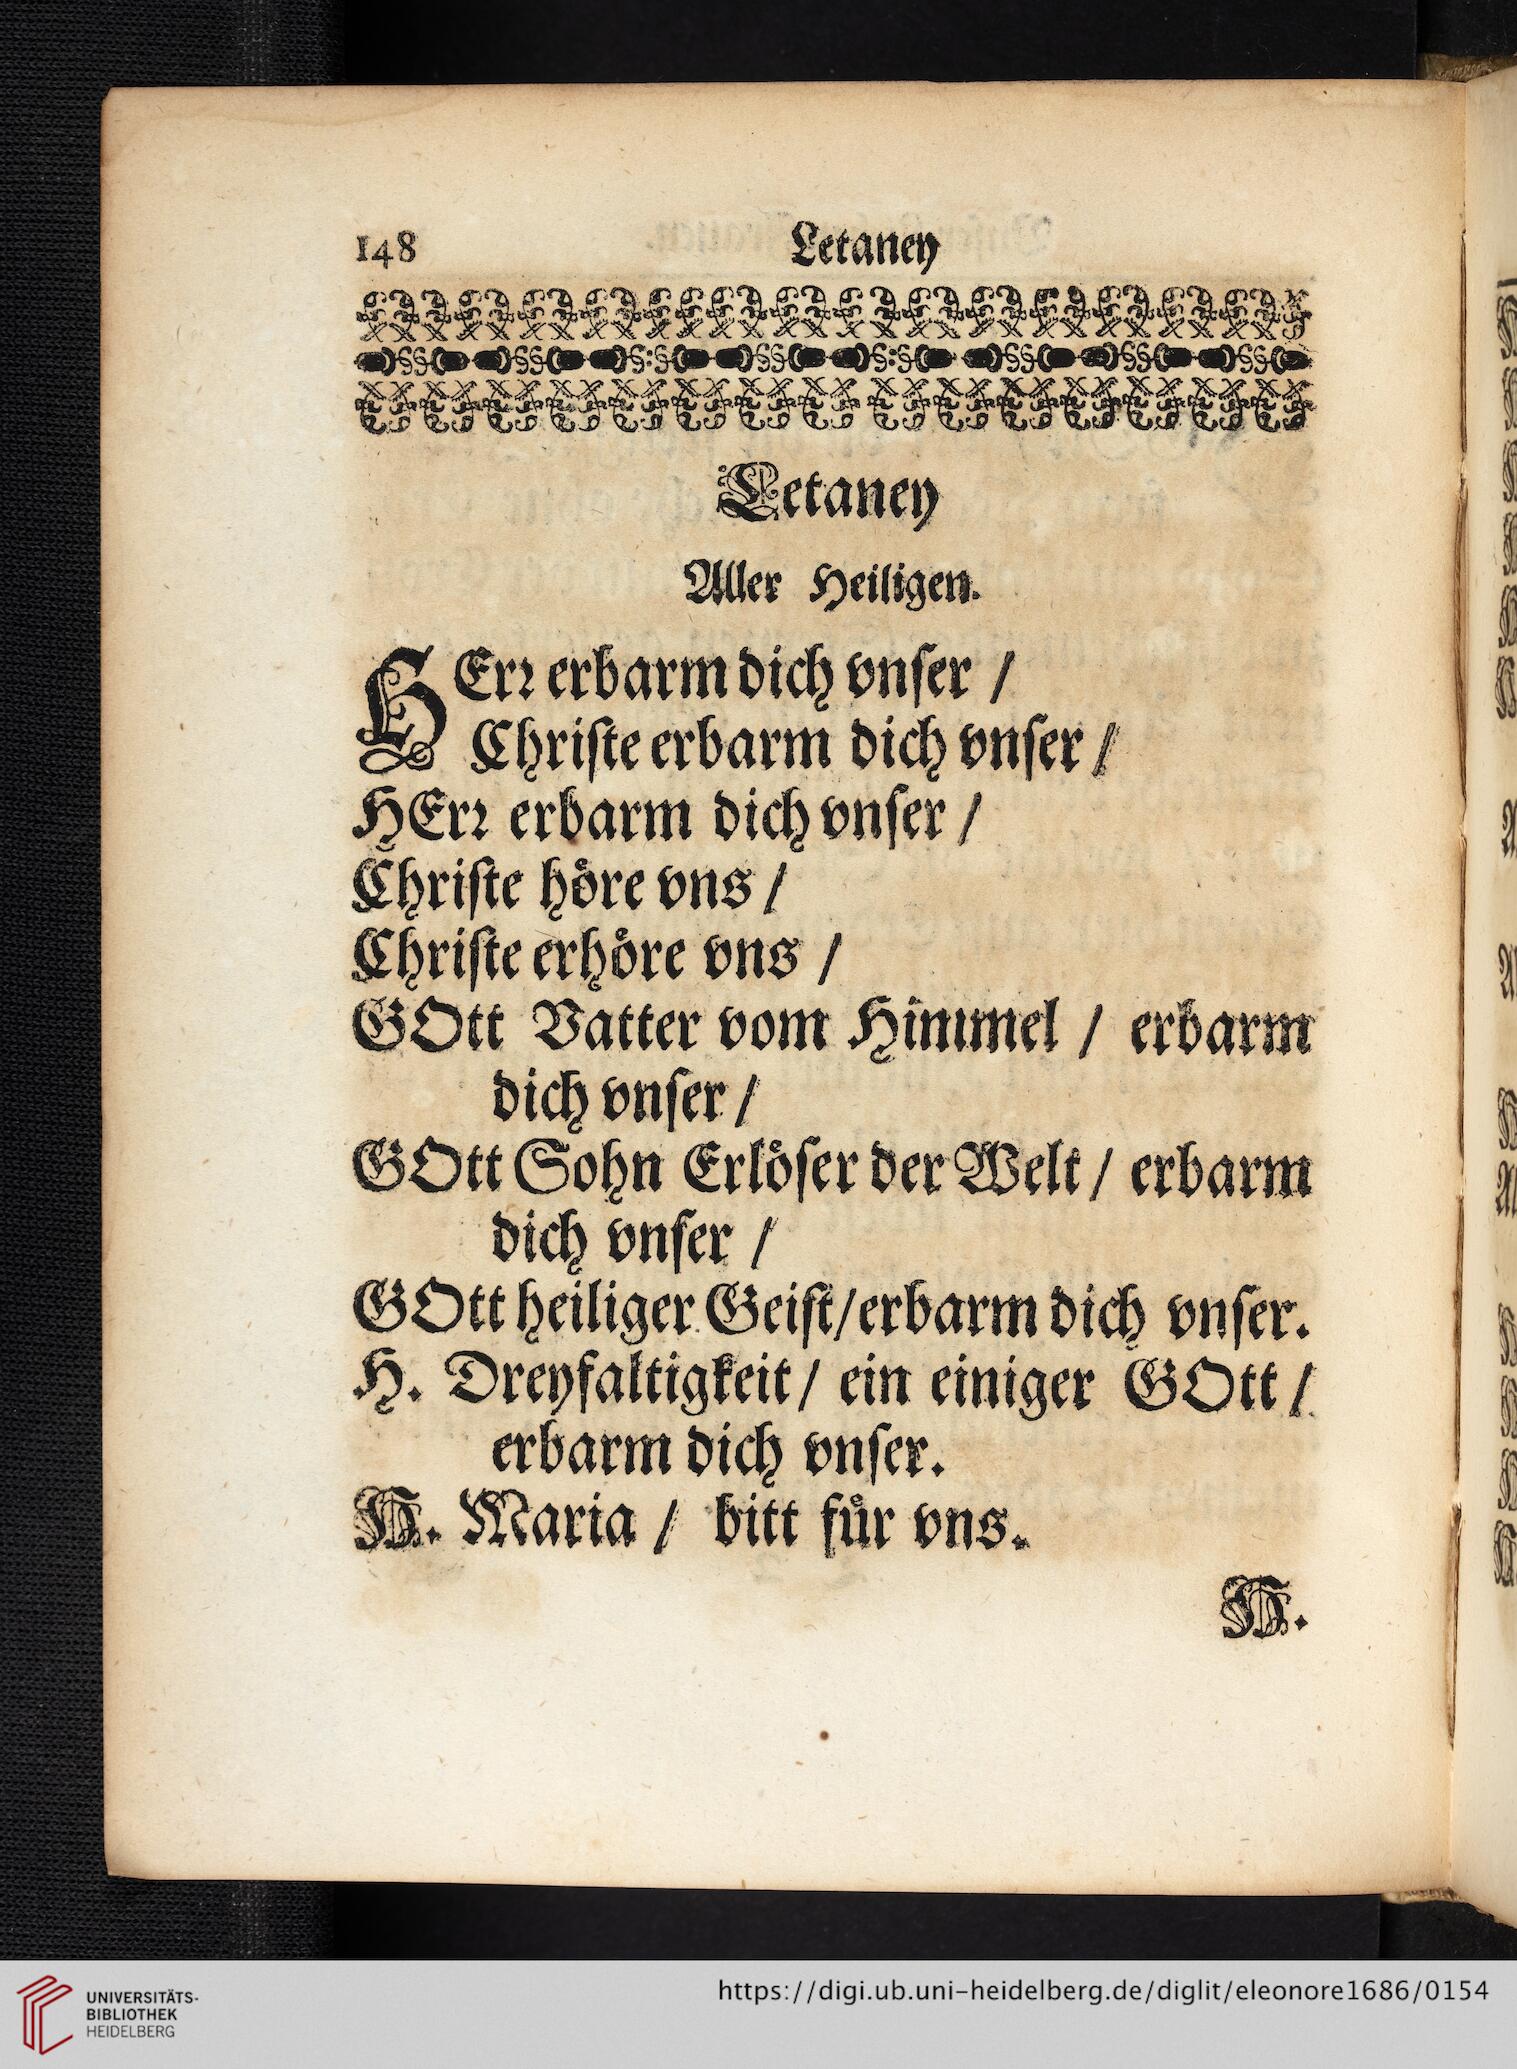 148 Letaney
Letaney
Aller Heiligen.
HErꝛ erbarm dich vnſer /
Chriſte erbarm dich vnſer /
HErꝛ erbarm dich vnſer /
Chriſte hoͤre vns /
Chriſte erhoͤre vns /
GOtt Vatter vom Himmel / erbarm
dich vnſer /
GOtt Sohn Erloͤſer der Welt / erbarm
dich vnſer /
GOtt heiliger Geiſt/erbarm dich vnſer.
H. Dreyfaltigkeit / ein einiger GOtt /
erbarm dich vnſer.
H. Maria / bitt fuͤr vns.
H.
https://digi.ub.uni-heidelberg.de/diglit/eleonore1686/0154
UNIVERSITÄTS-
BIBLIOTHEK
HEIDELBERG